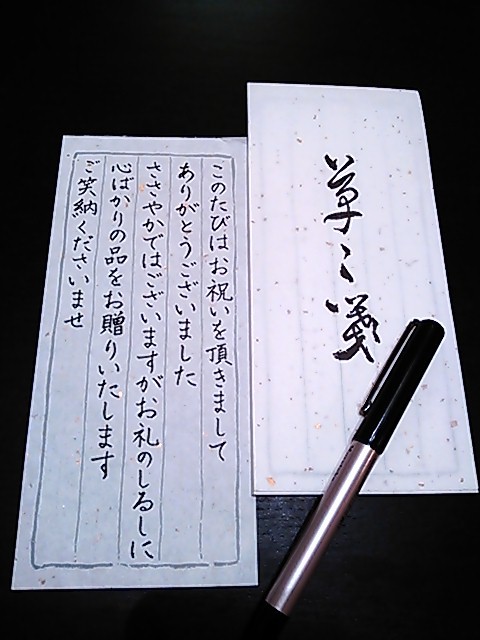 草々箋
このたびはお祝いを頂きまして
ありがとうございました
ささやかではございますがお礼のしるしに
心ばかりの品をお贈りいたします
ご笑納くださいませ